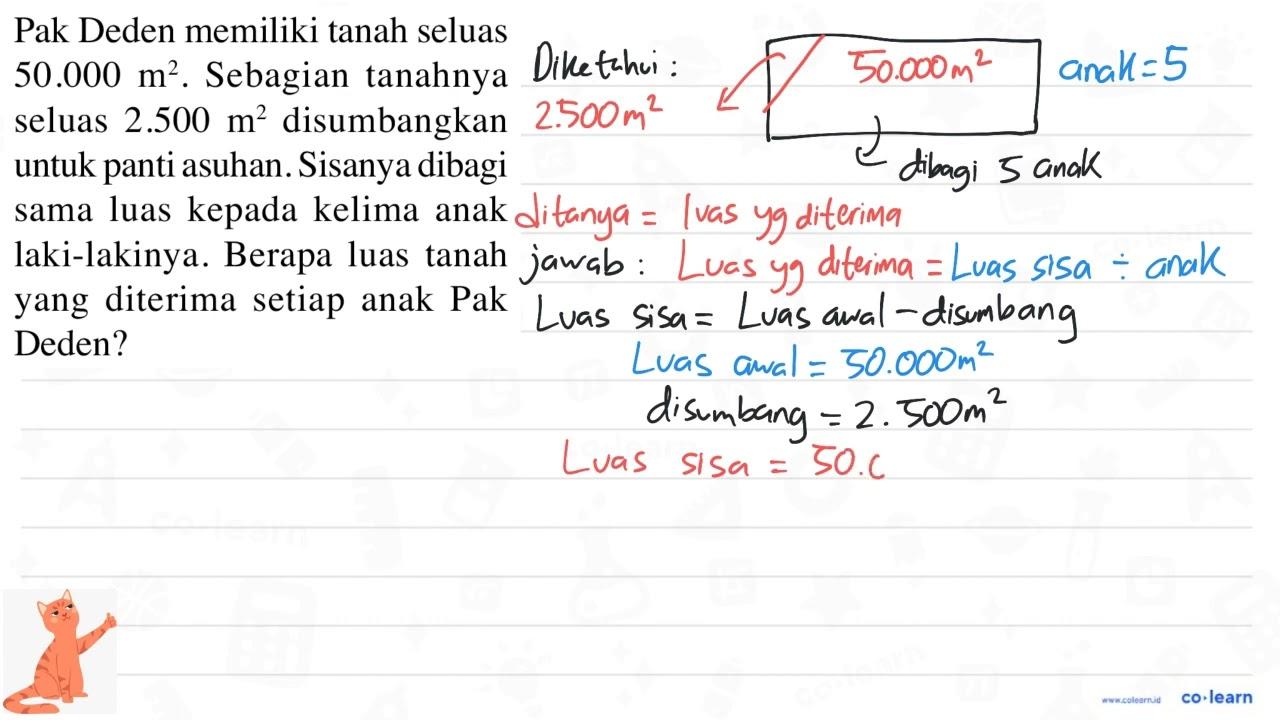 Pak Deden memiliki tanah seluas
50.000 m². Sebagian tanahnya
seluas 2.500 m² disumbangkan
untuk panti asuhan. Sisanya dibagi
sama luas kepada kelima anak
laki-lakinya. Berapa luas tanah
yang diterima setiap anak Pak
Deden?
Diketahui :
50.000 m²
anak = 5
2.500 m²
dibagi 5 anak
ditanya = luas yg diterima
jawab : Luas yg diterima = Luas sisa ÷ anak
Luas sisa = Luas awal - disumbang
Luas awal = 50.000 m²
disumbang = 2.500 m²
Luas sisa = 50.0
co·learn
www.colearn.id co·learn